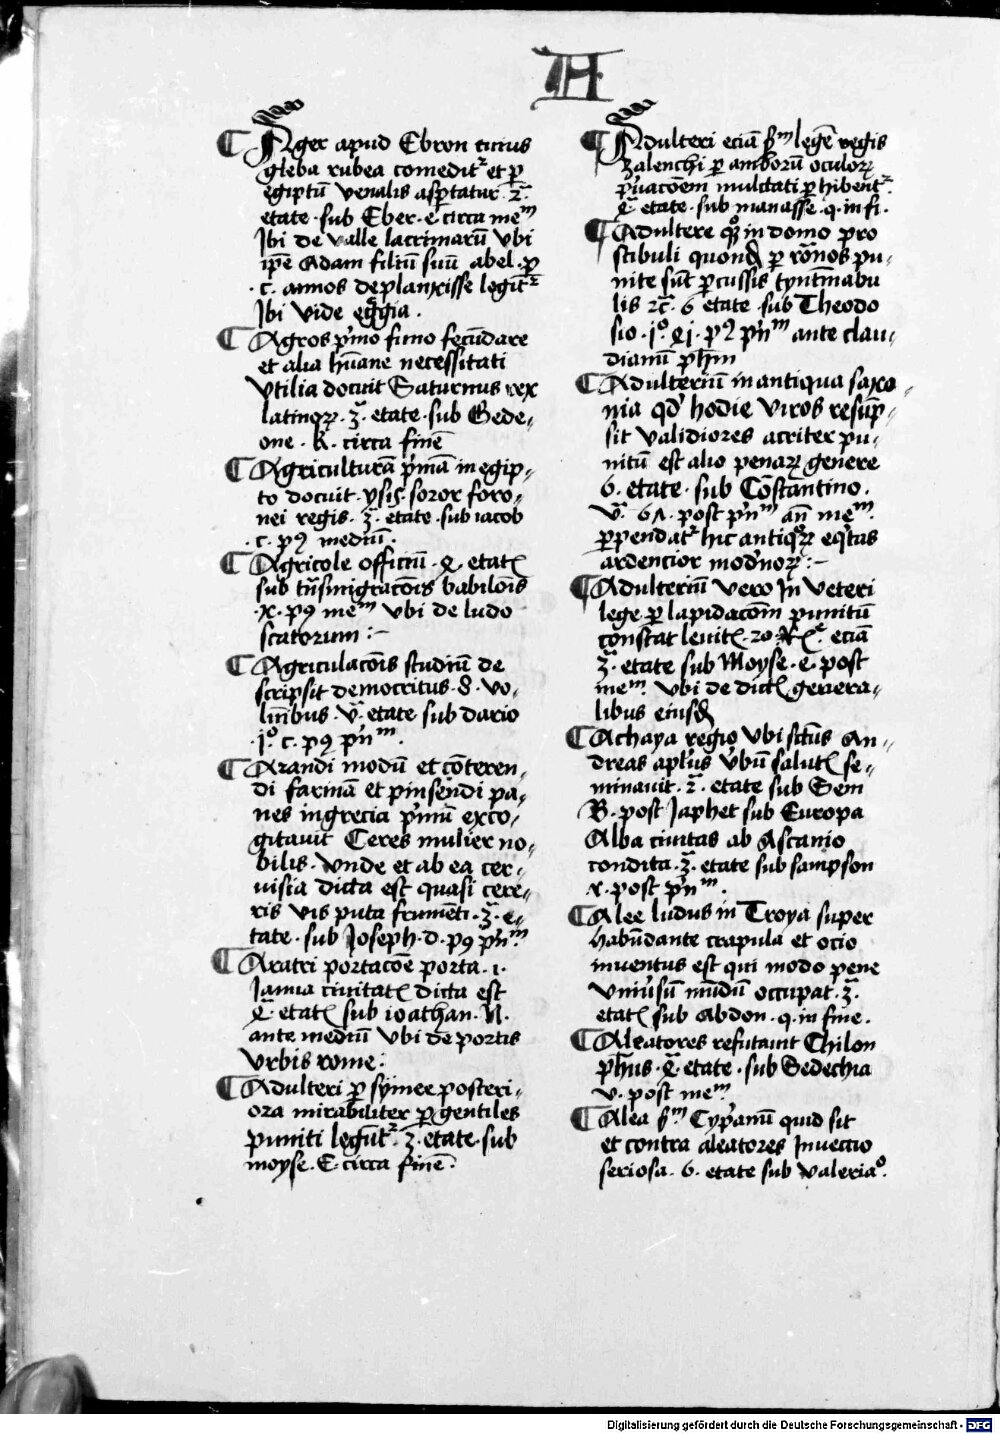 A
Ager apud Ebron cuius
gleba rubea comeditᷣ et ꝑ
egiptū venalis asꝑtatur .2ᵃ.
etate . sub Eber . e . circa meᵐ
Ibi de valle lacrimarū vbi
ipē Adam filiū suū abel . ꝑ
.c. annos deplanxisse legitᷣ
Ibi vide
Agros pͥmo fimo fecūdare
et alia hūane necessitati
vtilia docuit Saturnus rex
latinoꝝ . 3ᵃ. etate . sub Gede„
one . k . circa finē
Agriculturā pͥmā in egip„
to docuit . ysis soror foro„
nei regis . 3ᵃ. etate . sub iacob
.c. pꝯ mediū .
Agricole officiū . etatꝭ
sub trāsmigracōis babilōis
.x. pꝯ meᵐ vbi de ludo
scatorum :~
Agriculacōis studiū de
scripsit democritus . 8 . vo„
lūibus . vᵃ. etate sub dario
.jᵒ. c . pꝯ pͥnᵐ.
Arandi modū et cōteren„
di farinā et pinsendi pa„
nes in grecia pͥmū exco„
gitauit Ceres mulier no„
bilis . vnde et ab ea cer„
uisia dicta est quasi cere„
ris vis puta frumēti . 3ᵃ. e„
tate . sub Joseph . d . pꝯ pͥnᵐ.
Aratri portacōe porta . i .
Ianua ciuitatꝭ dicta est
etatꝭ sub ioathan . N .
ante mediū vbi de portis
vrbis rome :
Adulteri ꝑ symee posteri„
ora mirabiliter ꝑ gentiles
puniti legūtᷣ . 3ᵃ. etate . sub
moyse . E . circa finē .
Adulteri eciā ẜᵐ legē regis
zalenchi ꝑ amborū oculoꝝ
pͥuacōem mulctati ꝑhibentᷣ
etate . sub manasse . q . in fi .
Adultere in domo pro
stibuli quondā ꝑ romanos pu„
nite sūt ꝑcussis tyntīnabu
lis etate . sub Theodo
sio . jᵒ. pͥnᵐ ante clau„
dianū
Adulteriū in antiqua saxo„
nia qđ hodie viros resūp„
sit validiores acriter pu„
nitū est alio penaꝝ genere
6 . etate . sub Cōstantino .
post pͥnᵐ meᵐ.
ꝑpendatᷣ hic antiqͦꝝ eqͥtas
ardencior modͥnoꝝ :~
Adulteriū vero In veteri
lege ꝑ lapidacōm punitū
constat leuitꝭ . 20 . eciā
3ᵃ. etate sub Moyse . e . post
meᵐ. vbi de dictꝭ genera„
libus eiusđ
Achaya regio vbi sctūs An„
dreas aplus v̓bū salutꝭ se„
minauit . 2ᵃ. etate sub Sem
B . post Japhet sub Europa
Alba ciuitas ab Ascanio
condita . 3ᵃ. etate sub sampson
x . post pͥnᵐ.
Alee ludus in Troya super
habūdante crapula et ocio
inuentus est qui modo pene
vniu̓sū mūdū occupat . 3ᵃ.
etatꝭ sub Abdon . q . in fine .
Aleatores refutauit Chilon
ph̄us . etate . sub Sedechia
v . post meᵐ.
Alea ẜᵐ Cypͥanū quid sit
et contra aleatores Inueccio
seriosa . 6 . etate sub valeriaᵒ.
Digitalisierung gefördert durch die Deutsche Forschungsgemeinschaft - DFG